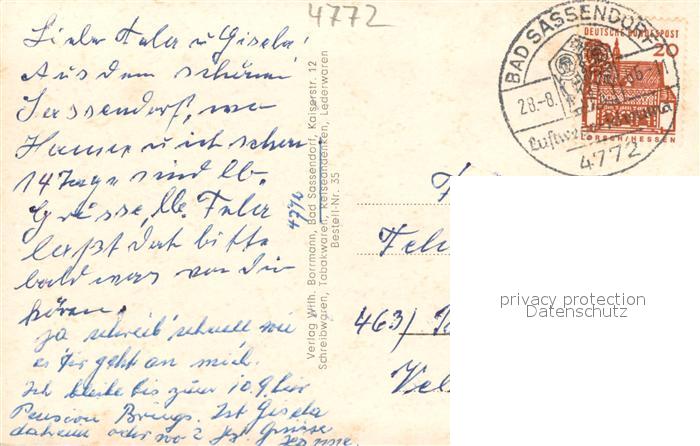 4772
Liebe Fela u Gisela!
Aus dem schönen
Sassendorf, wo
Hanne u ich schon
14 Tage sind lb.
Grüsse, lb. Fela
laßt Dat bitte
bald was von Dir
hören.
Ja schreib schnell wie
es Dir geht an mich.
Ich bleibe bis zum 10.9. hier
Pension Brings. Ist Gisela
daheim oder wo? Hzl. Grüsse
4770
Verlag Wilh. Borrmann, Bad Sassendorf, Kaiserstr. 12
Schreibwaren, Tabakwaren, Reiseandenken, Lederwaren
Bestell-Nr. 35
BAD SASSENDORF
28.-8.
4772
DEUTSCHE BUNDESPOST
20
LORSCH/HESSEN
463/
privacy protection
Datenschutz